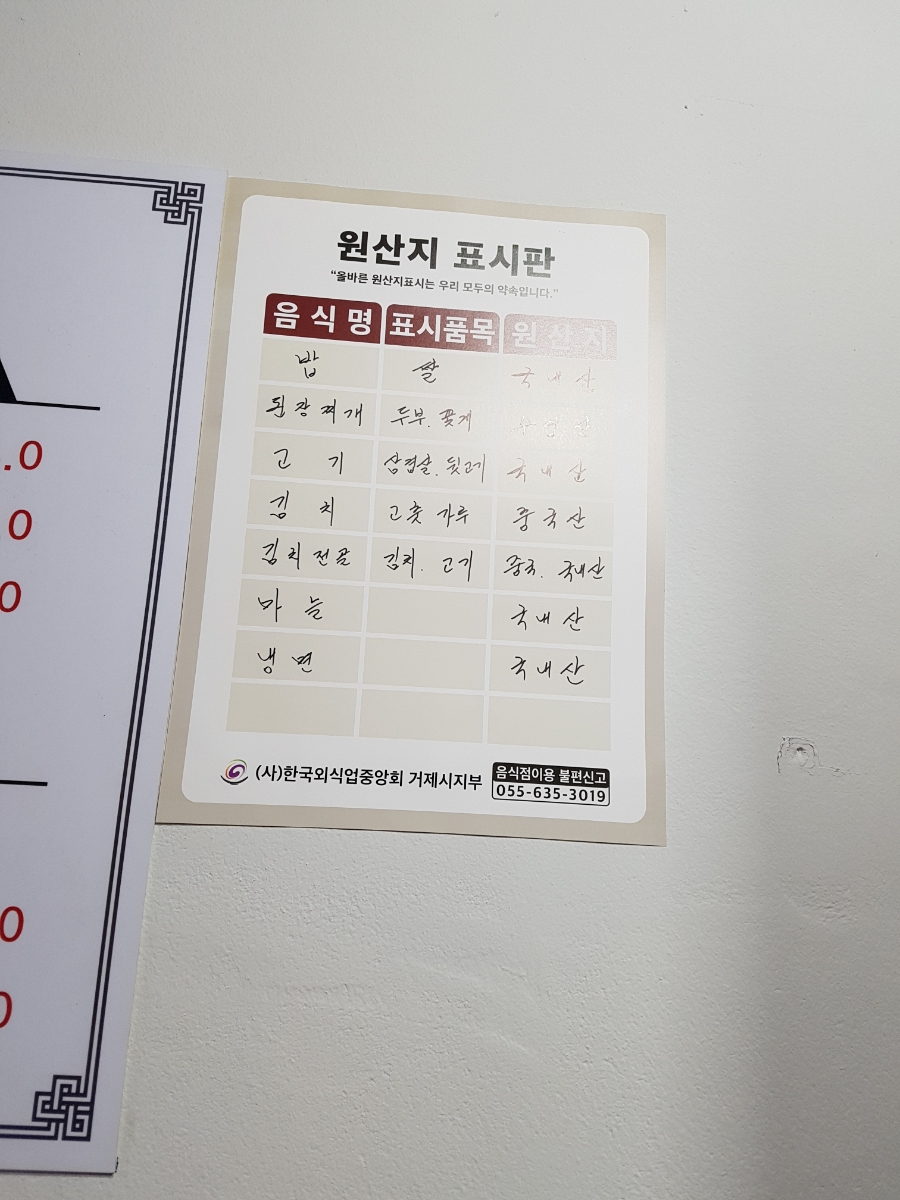 원산지 표시판
"올바른 원산지표시는 우리 모두의 약속입니다."
음식명 표시품목 원산지
밥 쌀 국내산
된장찌개 두부. 꽃게
고기 삼겹살. 뒷고기 국내산
김치 고춧가루 중국산
김치전골 김치. 고기 중국. 국내산
마늘 국내산
냉면 국내산
(사)한국외식업중앙회 거제시지부
음식점이용 불편신고
055-635-3019
.0
.0
0
0
0